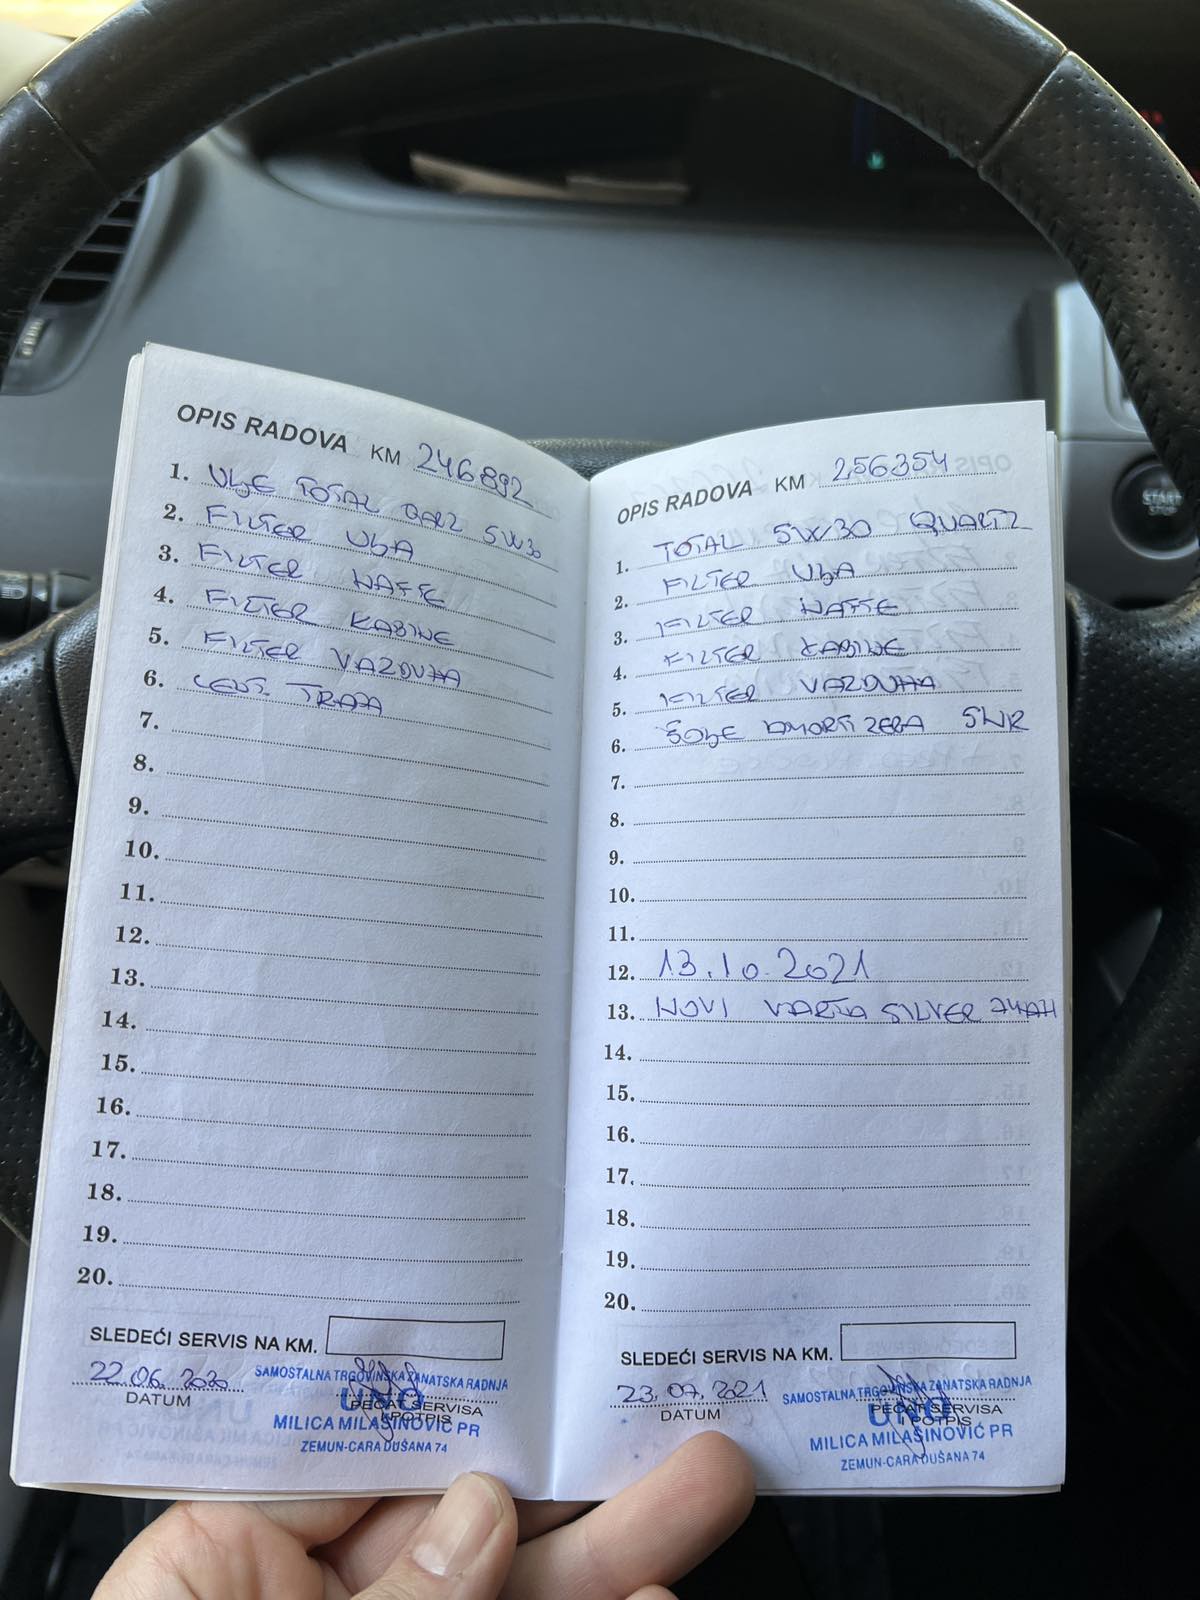 OPIS RADOVA KM 246892
1. ULJE TOTAL QARZ 5W30
2. FILTER ULJA
3. FILTER NAFTE
4. FILTER KABINE
5. FILTER VAZDUHA
6. TRAJA
7.
8.
9.
10.
11.
12.
13.
14.
15.
16.
17.
18.
19.
20.
SLEDEĆI SERVIS NA KM.
22.06.2020
DATUM
SAMOSTALNA TRGOVINSKA ZANATSKA RADNJA
UNO
PEČAT SERVISA
POTPIS
MILICA MILAŠINOVIĆ PR
ZEMUN-CARA DUŠANA 74
OPIS RADOVA KM 256354
1. TOTAL 5W30 QUARTZ
2. FILTER ULJA
3. FILTER NAFTE
4. FILTER KABINE
5. FILTER VAZDUHA
6. ŠOLJE AMORTIZERA
7.
8.
9.
10.
11.
12. 13.10.2021
13. NOVI VARTA SILVER 74AH
14.
15.
16.
17.
18.
19.
20.
SLEDEĆI SERVIS NA KM.
23.07.2021
DATUM
SAMOSTALNA TRGOVINSKA ZANATSKA RADNJA
UNO
PEČAT SERVISA
POTPIS
MILICA MILAŠINOVIĆ PR
ZEMUN-CARA DUŠANA 74
START
STOP